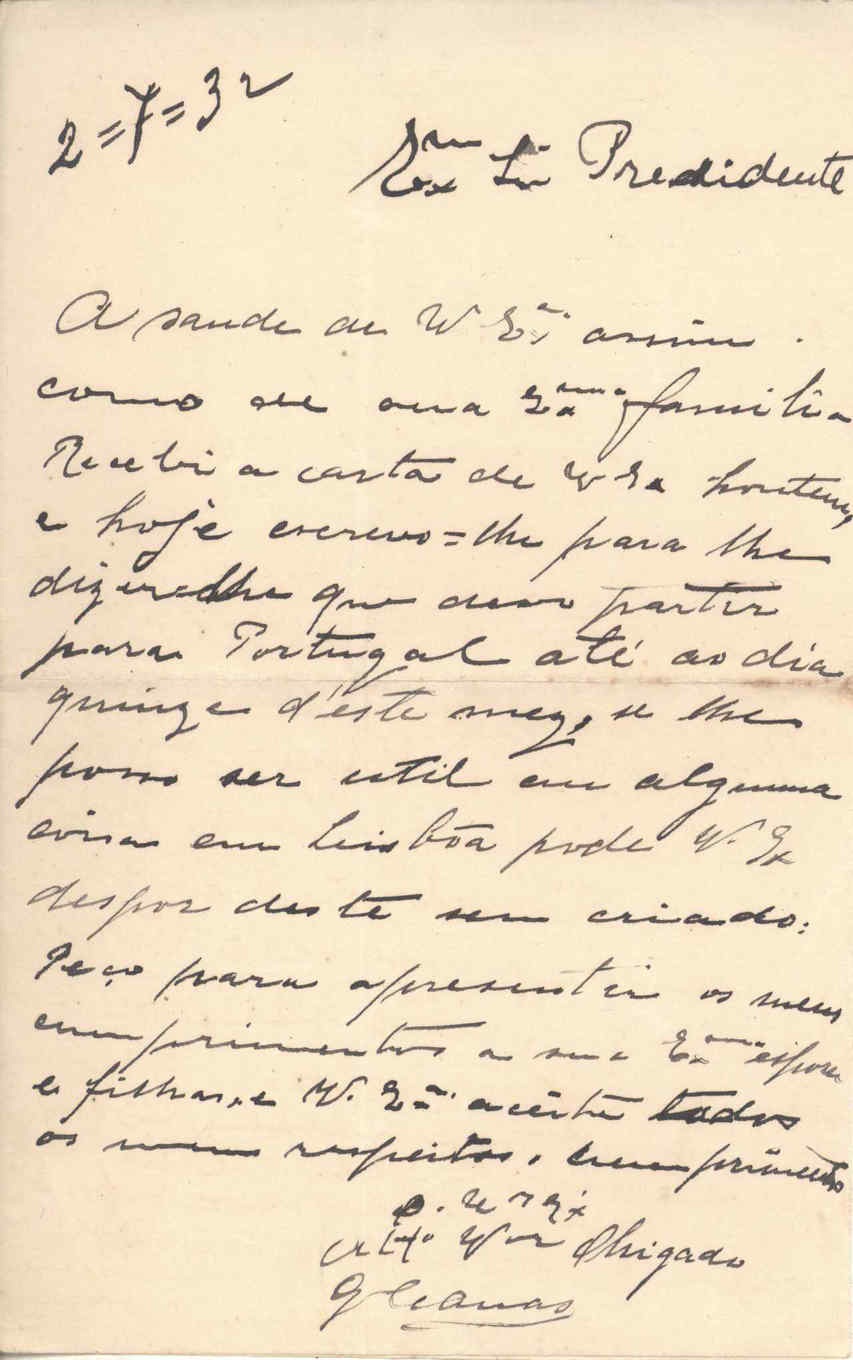 2=7=32
Exmo Snr Predidente
A saude de V Exa assim
como de sua Exma familia
Recebi a carta de V Exa hontem,
e hoje escrevo=lhe para lhe
dizer=lhe que devo partir
para Portugal até ao dia
quinze d'este mez, se lhe
posso ser util em alguma
coisa em Lisbôa pode V. Ex
despor deste seu criado:
Peço para apresentar os meus
cumprimentos a sua Exma espoza
e filhas, e V. Exa aceite todos
os meus respeitos, cumprimentos
De V Ex
Atto Vor Obrigado